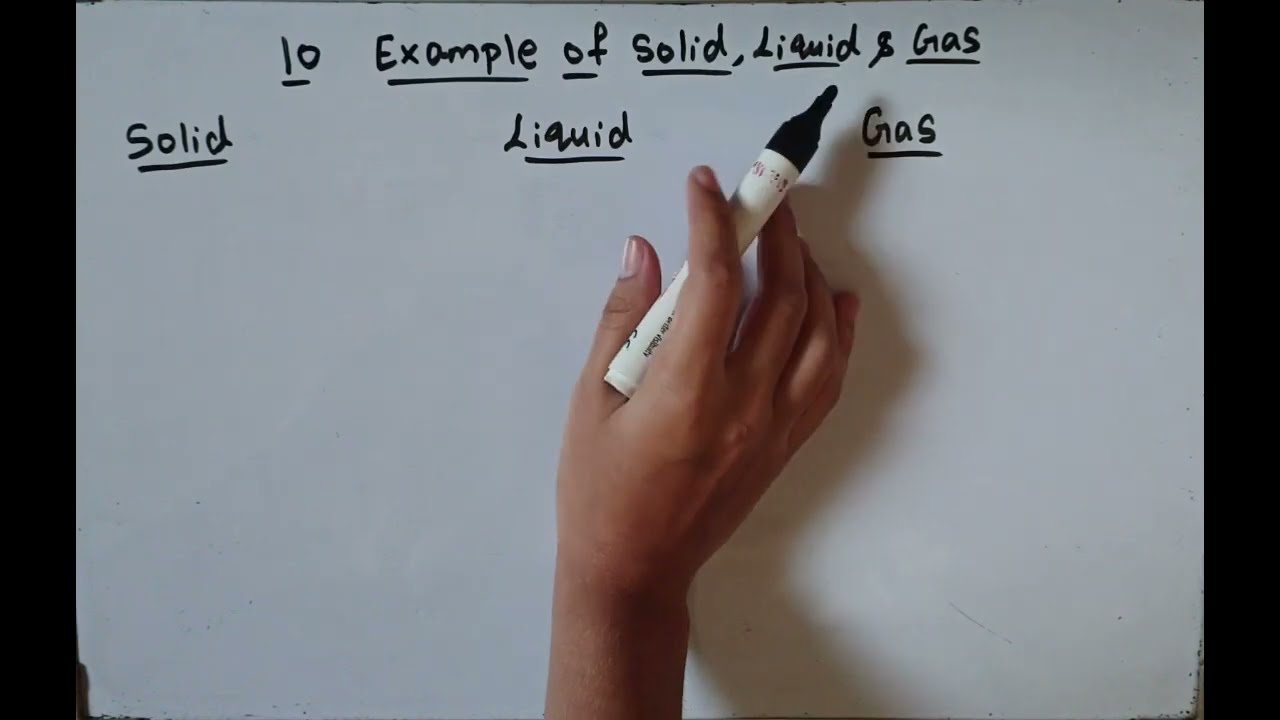 10 Example of Solid, Liquid & Gas
Solid Liquid Gas